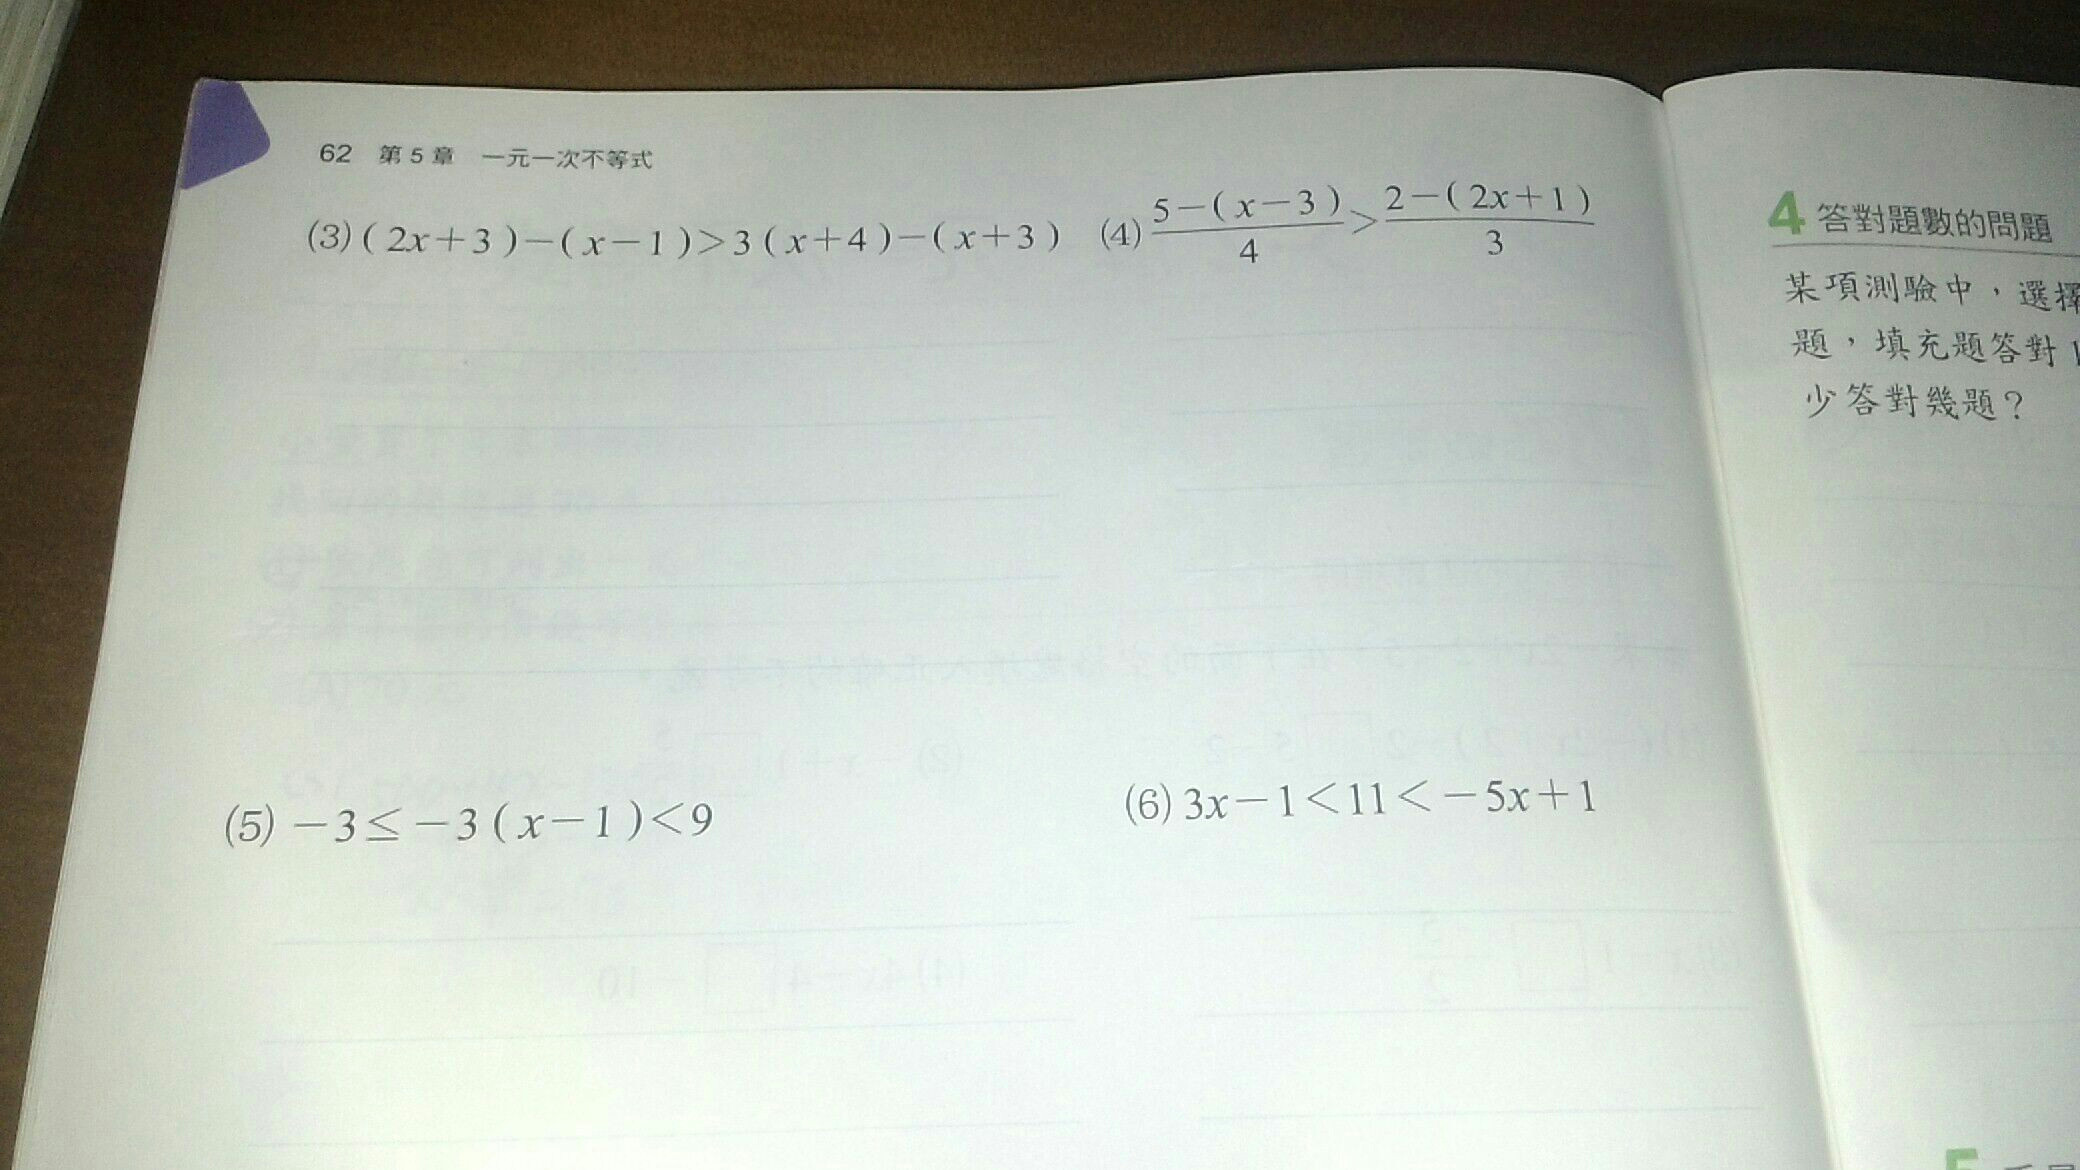 62 第5章 一元一次不等式
(3) (2x+3)-(x-1)>3(x+4)-(x+3)
(4) \frac{5-(x-3)}{4}>\frac{2-(2x+1)}{3}
(5) -3≤-3(x-1)<9
(6) 3x-1<11<-5x+1
4 答對題數的問題
某項測驗中，選擇
題，填充題答對1
少答對幾題？